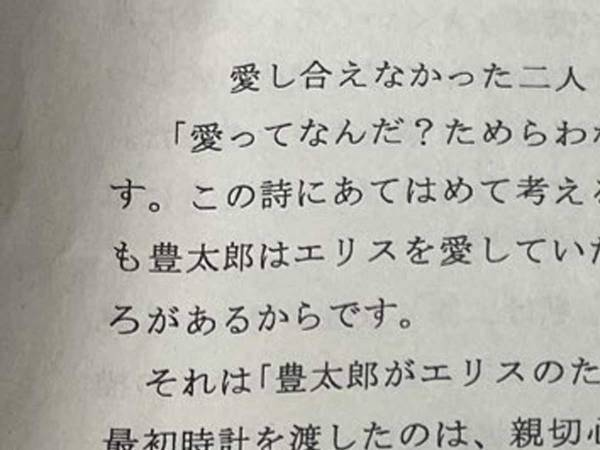 愛し合えなかった二人
「愛ってなんだ？ためらわ
す。この詩にあてはめて考える
も豊太郎はエリスを愛していた
ろがあるからです。
それは「豊太郎がエリスのた
最初時計を渡したのは、親切心